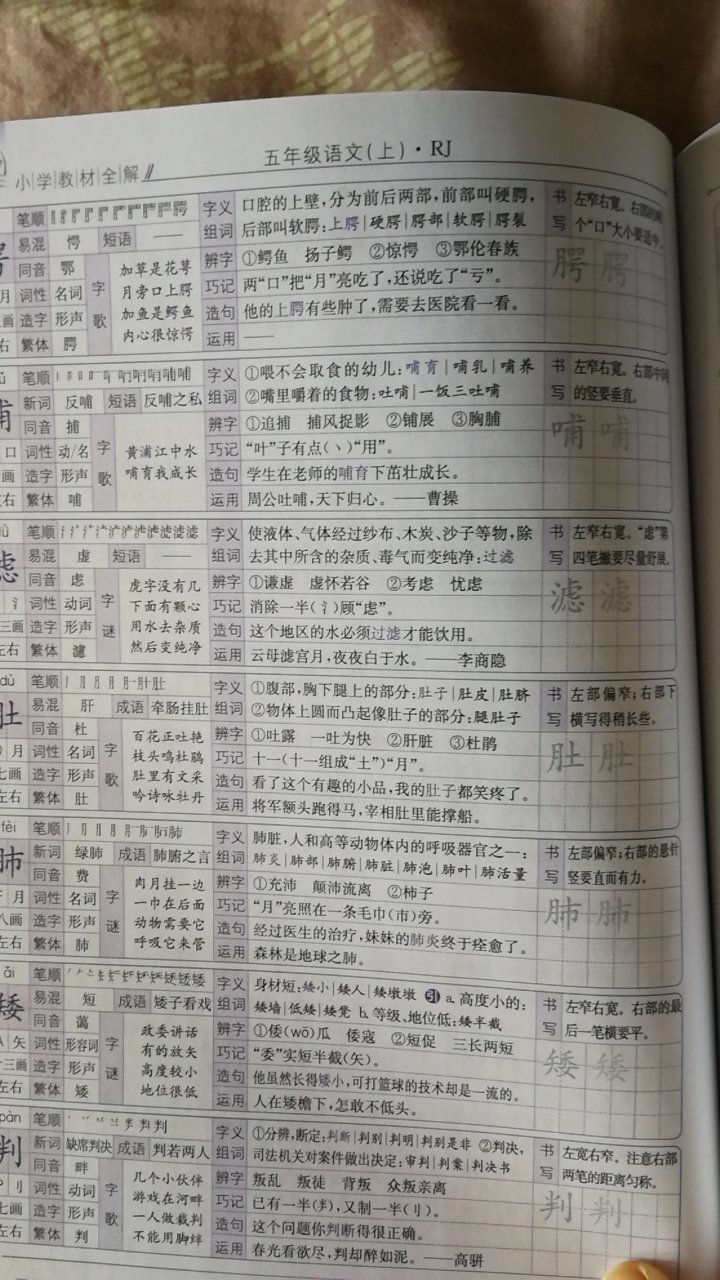 小学教材全解
五年级语文(上)·RJ
笔顺
字义 口腔的上壁,分为前后两部,前部叫硬腭,
组词 后部叫软腭:上腭|硬腭|腭部|软腭|腭裂
书写 左窄右宽。右部的两
个“口”大小要适中。
易混 愕 短语 ——
同音 鄂
月 词性 名词
画 造字 形声
右 繁体 腭
字歌
加草是花萼
月旁口上腭
加鱼是鳄鱼
内心很惊愕
辨字 ①鳄鱼 扬子鳄 ②惊愕 ③鄂伦春族
巧记 两“口”把“月”亮吃了,还说吃了“亏”。
造句 他的上腭有些肿了,需要去医院看一看。
运用 ——
腭 腭
哺
笔顺
新词 反哺 短语 反哺之私
字义 ①喂不会取食的幼儿:哺育|哺乳|哺养
组词 ②嘴里嚼着的食物:吐哺|一饭三吐哺
书写 左窄右宽。右部中间
的竖要垂直。
同音 捕
口 词性 动/名
画 造字 形声
左右 繁体 哺
字歌
黄浦江中水
哺育我成长
辨字 ①追捕 捕风捉影 ②铺展 ③胸脯
巧记 “叶”子有点(丶)“用”。
造句 学生在老师的哺育下茁壮成长。
运用 周公吐哺,天下归心。——曹操
哺 哺
lǜ
滤
笔顺
易混 虚 短语 ——
字义 使液体、气体经过纱布、木炭、沙子等物,除
组词 去其中所含的杂质、毒气而变纯净:过滤
书写 左窄右宽。“虑”第
四笔撇要尽量舒展。
同音 虑
氵 词性 动词
十三画 造字 形声
左右 繁体 濾
字谜
虎字没有几
下面有颗心
用水去杂质
然后变纯净
辨字 ①谦虚 虚怀若谷 ②考虑 忧虑
巧记 消除一半(氵)顾“虑”。
造句 这个地区的水必须过滤才能饮用。
运用 云母滤宫月,夜夜白于水。——李商隐
滤 滤
dù
肚
笔顺
易混 肝 成语 牵肠挂肚
字义 ①腹部,胸下腿上的部分:肚子|肚皮|肚脐
组词 ②物体上圆而凸起像肚子的部分:腿肚子
书写 左部偏窄;右部下
横写得稍长些。
同音 杜
月 词性 名词
七画 造字 形声
左右 繁体 肚
字歌
百花正吐艳
枝头鸣杜鹃
肚里有文采
吟诗咏牡丹
辨字 ①吐露 一吐为快 ②肝脏 ③杜鹃
巧记 十一(十一组成“土”)“月”。
造句 看了这个有趣的小品,我的肚子都笑疼了。
运用 将军额头跑得马,宰相肚里能撑船。
肚 肚
fèi
肺
笔顺
新词 绿肺 成语 肺腑之言
字义 肺脏,人和高等动物体内的呼吸器官之一:
组词 肺炎|肺部|肺腑|肺脏|肺泡|肺叶|肺活量
书写 左部偏窄;右部的悬针
竖要直而有力。
同音 费
月 词性 名词
八画 造字 形声
左右 繁体 肺
字谜
肉月挂一边
一巾在后面
动物需要它
呼吸它来管
辨字 ①充沛 颠沛流离 ②柿子
巧记 “月”亮照在一条毛巾(市)旁。
造句 经过医生的治疗,妹妹的肺炎终于痊愈了。
运用 森林是地球之肺。
肺 肺
ǎi
矮
笔顺
易混 短 成语 矮子看戏
字义 身材短:矮小|矮人|矮墩墩 引 a.高度小的:
组词 矮墙|低矮|矮凳 b.等级、地位低:矮半截
书写 左窄右宽。右部的最
后一笔横要平。
同音 蔼
矢 词性 形容词
十三画 造字 形声
左右 繁体 矮
字谜
政委讲话
有的放矢
高度较小
地位很低
辨字 ①倭(wō)瓜 倭寇 ②短促 三长两短
巧记 “委”实短半截(矢)。
造句 他虽然长得矮小,可打篮球的技术却是一流的。
运用 人在矮檐下,怎敢不低头。
矮 矮
pàn
判
笔顺
新词 缺席判决 成语 判若两人
字义 ①分辨,断定:判断|判别|判明|判别是非 ②判决,
组词 司法机关对案件做出决定:审判|判案|判决书
书写 左宽右窄。注意右部
两笔的距离匀称。
同音 畔
刂 词性 动词
七画 造字 形声
左右 繁体 判
字歌
几个小伙伴
游戏在河畔
一人做裁判
不能用脚绊
辨字 叛乱 叛徒 背叛 众叛亲离
巧记 已有一半(半),又制一半(刂)。
造句 这个问题你判断得很正确。
运用 春光看欲尽,判却醉如泥。——高骈
判 判